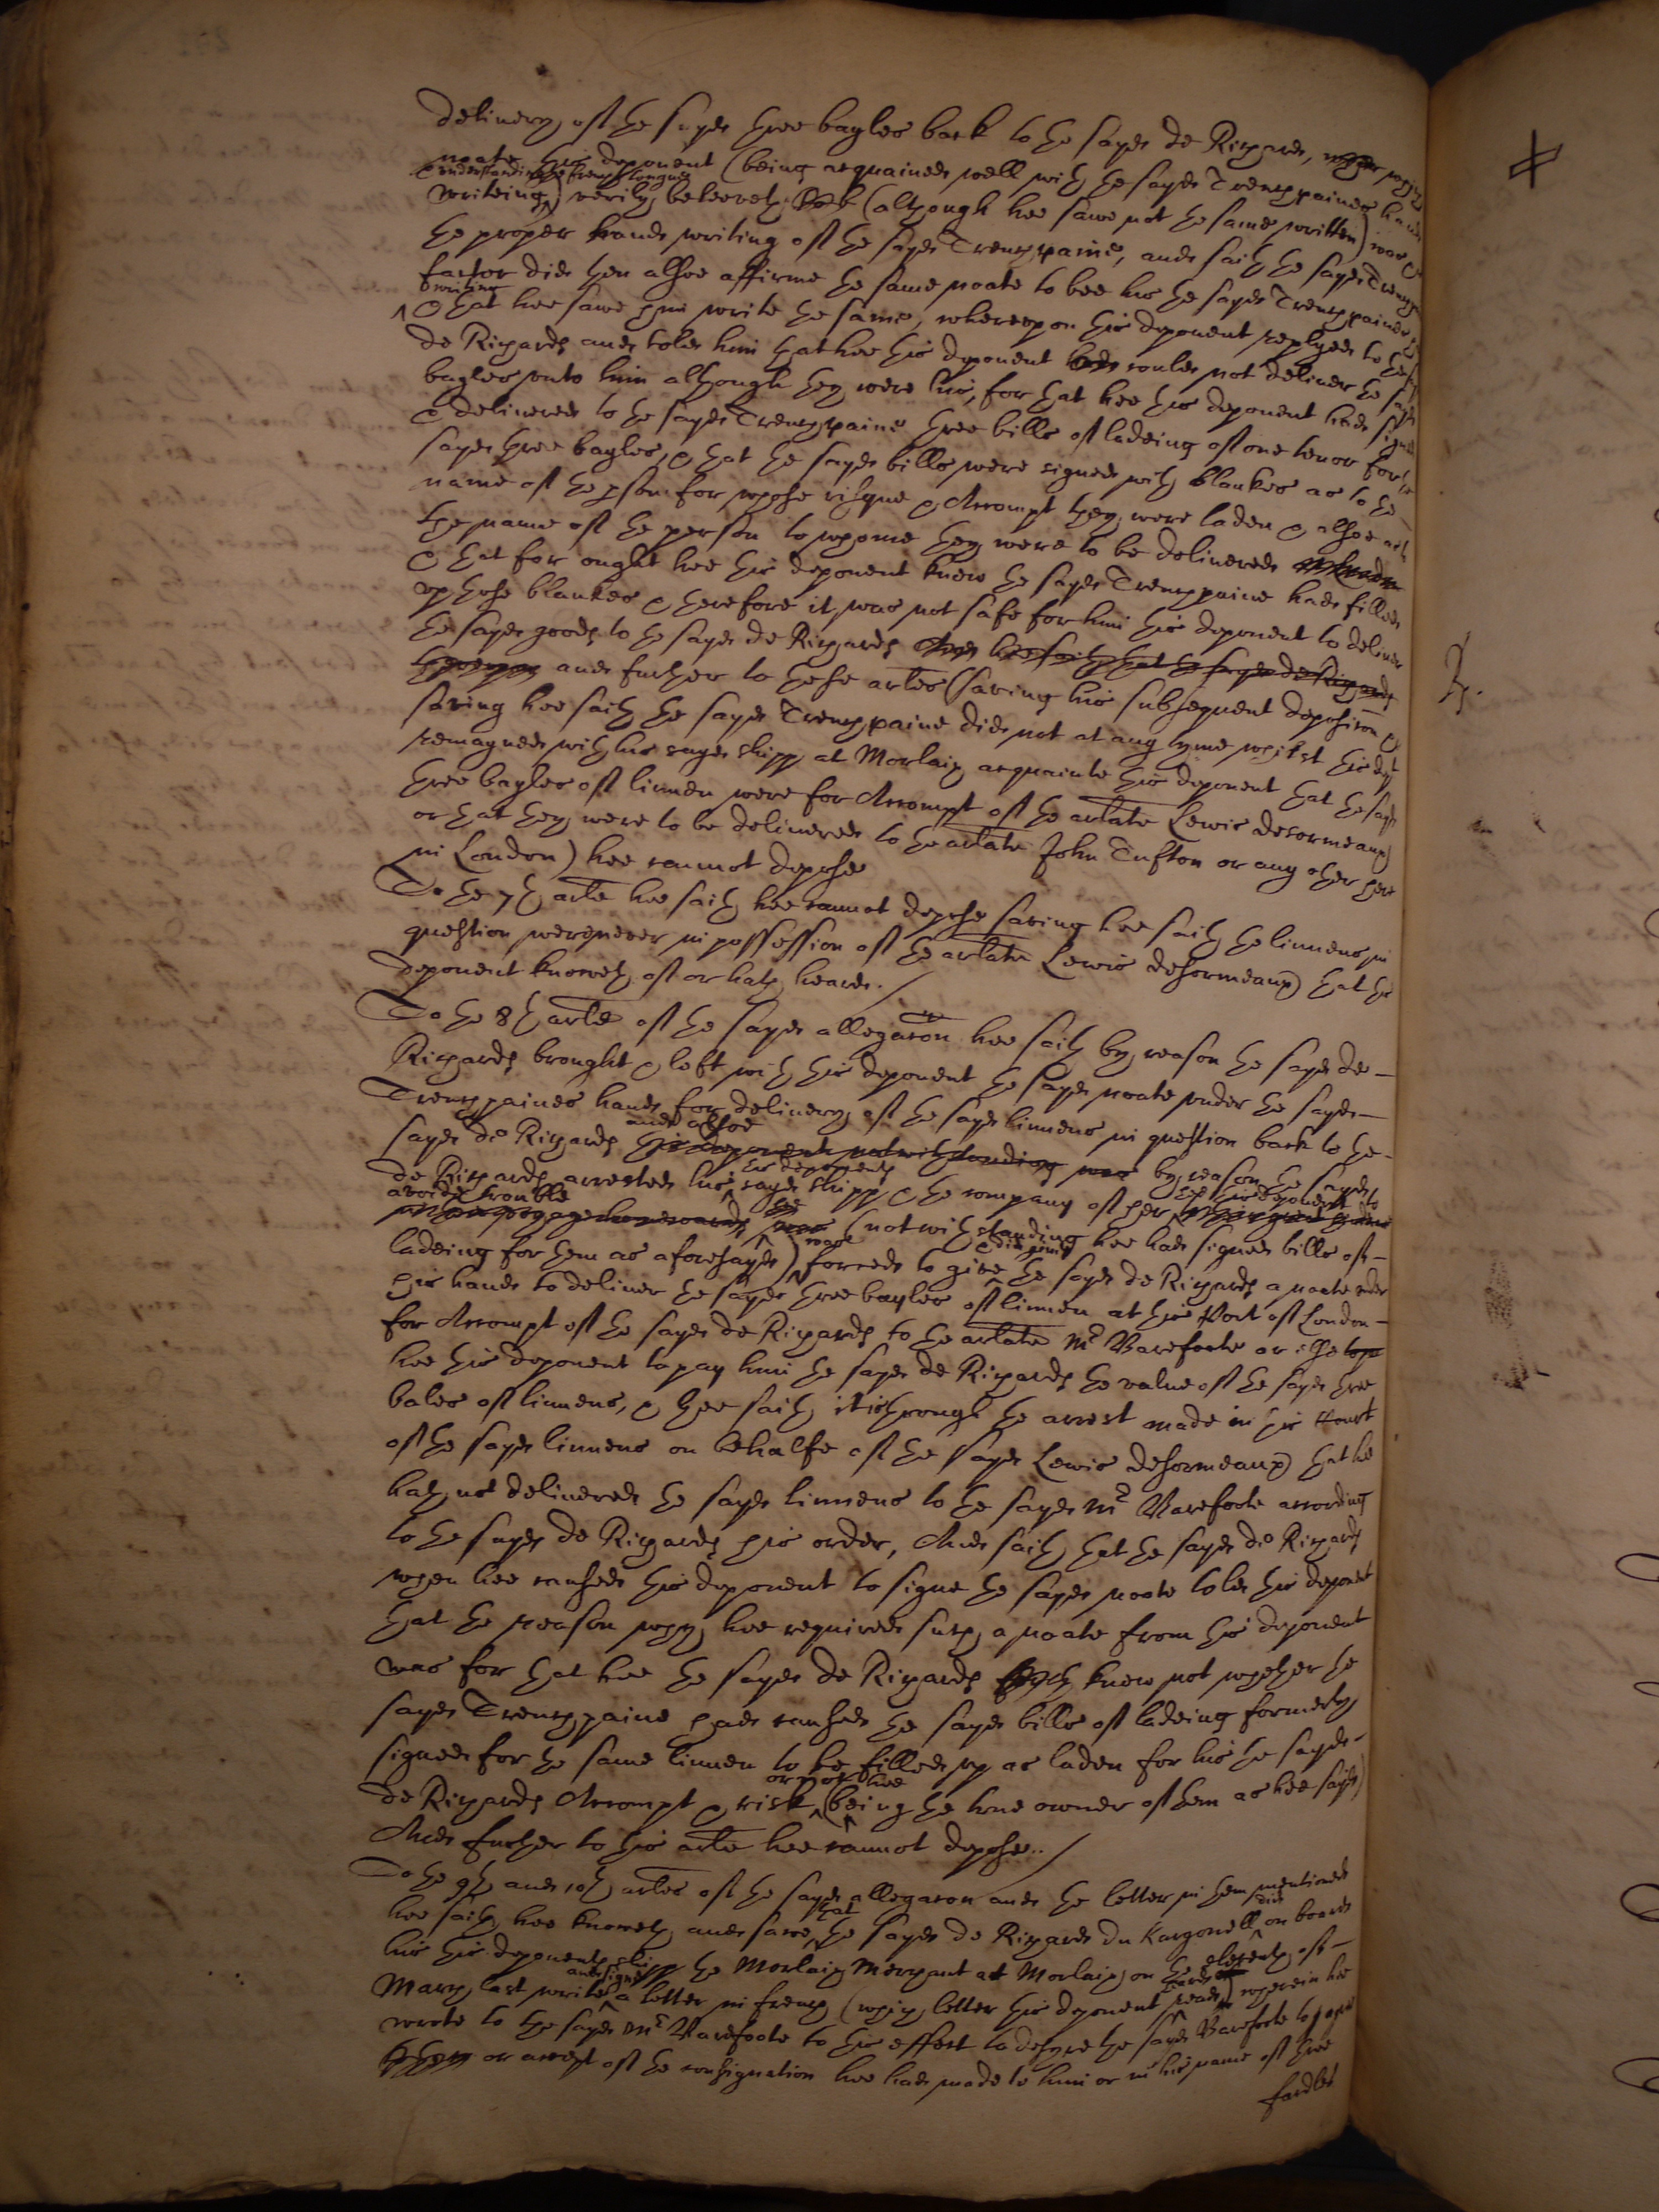 delivery of the sayd three bayles back to the sayd de Richards, which
noate this deponent (being acquainted well with the sayd Trenchpaines hand
& understanding the french tongue
writeing) verily beleeveth (although hee sawe not the same written) was
the proper hand writing of the sayd Trenchpaine, and saith the sayd Trench
factor did then alsoe affirme the same noate to bee his the sayd Trenchpaines
writing
& that hee sawe him write the same, whereupon this deponent replyed to the
de Richards and told him that hee this deponent could not deliver the sayd
bayles unto him although they were his, for that hee this deponent had signed
& delivered to the sayd Trenchpaine three bills of ladeing of one tenor for the
sayd three bayles, & that the sayd bills were signed with blankes as to the
name of the pson for whose risque & Accompt they were laden & alsoe as to
the name of the person to whome they were to be delivered
& that for ought hee this deponent knew the sayd Trenchpaine had filled
up those blankes & therefore it was not safe for him this deponent to deliver
the sayd goods to the sayd de Richards And hee saith that the sayd de Richards
thereupon and further to these arles (saving his subsequent deposicon &
saving hee saith the sayd Trenchpaine did not at any tyme whilst this dept
remayned with his sayd shipp at Morlaix acquainte this deponent that the sayd
three bayles of linnen were for Accompt of the arlate Lewis desormeaux
or that they were to be delivered to the arlate John Tufton or any other here
in London) hee cannot depose
To the 7th arle hee saith hee cannot depose saving hee saith the linnens in
question were never in possession of the arlate Lewis desormeaux that this
deponent knoweth of or hath heard. /
To the 8th arle of the sayd allegacon hee saith by reason the sayd de
Richards brought & left with this deponent the sayd noate under the sayd
Trenchpaines hand for delivery of the sayd linnens in question back to the
and alsoe
sayd de Richards this deponent notwithstanding was by reason the sayd
this deponents
de Richards arrested his sayd shipp & the company of her hee this deponent to
avoide trouble
(notwithstanding hee had signed bills of
was & did give
ladeing for them as aforesayd) forced to give the sayd de Richards a noate under
his hand to deliver the sayd three bayles of linnen at this Port of London
for Accompt of the sayd de Richards to the arlate Mr Barefoote or else
hee this deponent to pay him the sayd de Richards the value of the sayd three
bales of linnens, & hee saith it is through the arrest made in this Court
of the sayd linnens on behalfe of the sayd Lewis desormeaux that hee
hath not delivered the sayd linnens to the sayd Mr Barefoote according
to the sayd de Richards his order, And saith that the sayd de Richards
when hee caused this deponent to signe the sayd noate told this deponent
that the reason why hee required such a noate from this deponent
was for that hee the sayd de Richards knew not whether the
sayd Trenchpaine had caused the sayd bills of ladeing formerly
signed for the same linnen to be filled up as laden for his the sayd
or not hee
de Richards Accompt & risk (being the true owner of them as hee sayd)
And further to this arle hee cannot depose. /
To the 9th and 10th arles of the sayd allegacon and the letter in them mentioned
that did
hee saith hee knoweth and sawe the sayd de Richards du Kargonell on board
his this deponents shipp the Morlaix Merchant at Morlaix on the eleventh of
and signe heard
March last write a letter in french (which letter this deponent read) wherein hee
wrote to the sayd Mr Barefoote to this effect to desyre the sayd Barefoote to
or accept of the consignation hee had made to him or in his name of three
fardles